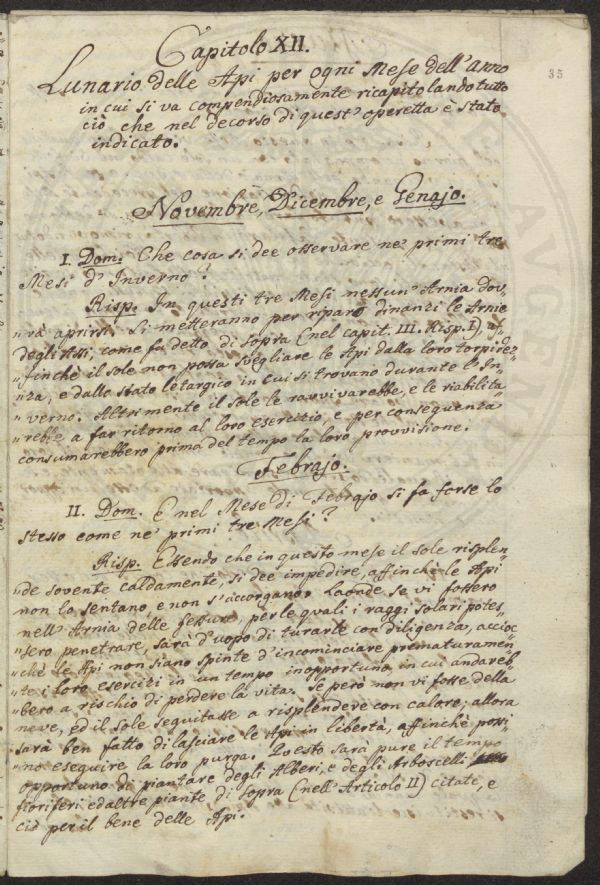 35
Capitolo XII.
Lunario delle Api per ogni Mese dell'anno
in cui si va compendiosamente ricapitolando tutto
ciò che nel decorso di quest'operetta è stato
indicato.
Novembre, Dicembre, e Genajo.
I. Dom. Che cosa si dee osservare ne' primi tre
Mesi d'Inverno?
Risp. In questi tre Mesi nessun'Arnia dov-
"rà aprirsi. Si metteranno per riparo dinanzi le Arnie
degli Assi, come fu detto di sopra (nel capit. III. Risp. I), af-
"finchè il sole non possa svegliare le Api dalla loro torpidez-
"za, e dallo stato letargico in cui si trovano durante l'In-
"verno. Altrimente il sole le ravvivarebbe, e le riabilita-
"rebbe a far ritorno al loro esercizio e per conseguenza
consumarebbero prima del tempo la loro provvisione.
Febrajo.
II. Dom. E nel Mese di Febrajo si fa forse lo
stesso come ne' primi tre Mesi?
Risp. Essendo che in questo mese il sole risplen-
"de sovente caldamente, si dee impedire, affinchè le Api
non lo sentano, e non s'accorgano. Laonde, se vi fossero
nell'Arnia delle fessure, per le quali i raggi solari potes-
"sero penetrare, sarà d'uopo di turarle con diligenza, accioc-
"chè le Api non siano spinte d'incominciare prematuramen-
"te i loro esercizi in un tempo inopportuno, in cui andareb-
"bero a rischio di perdere la vita. Se però non vi fosse della
neve, ed il sole seguitasse a risplendere con calore, allora
sarà ben fatto di lasciare le Api in libertà, affinchè possi-
"no eseguire la loro purga. Questo sarà pure il tempo
opportuno di piantare degli Alberi, e degli Arboscelli
fioriferi ed altre piante di sopra (nell'Articolo II) citate, e
ciò per il bene delle Api.